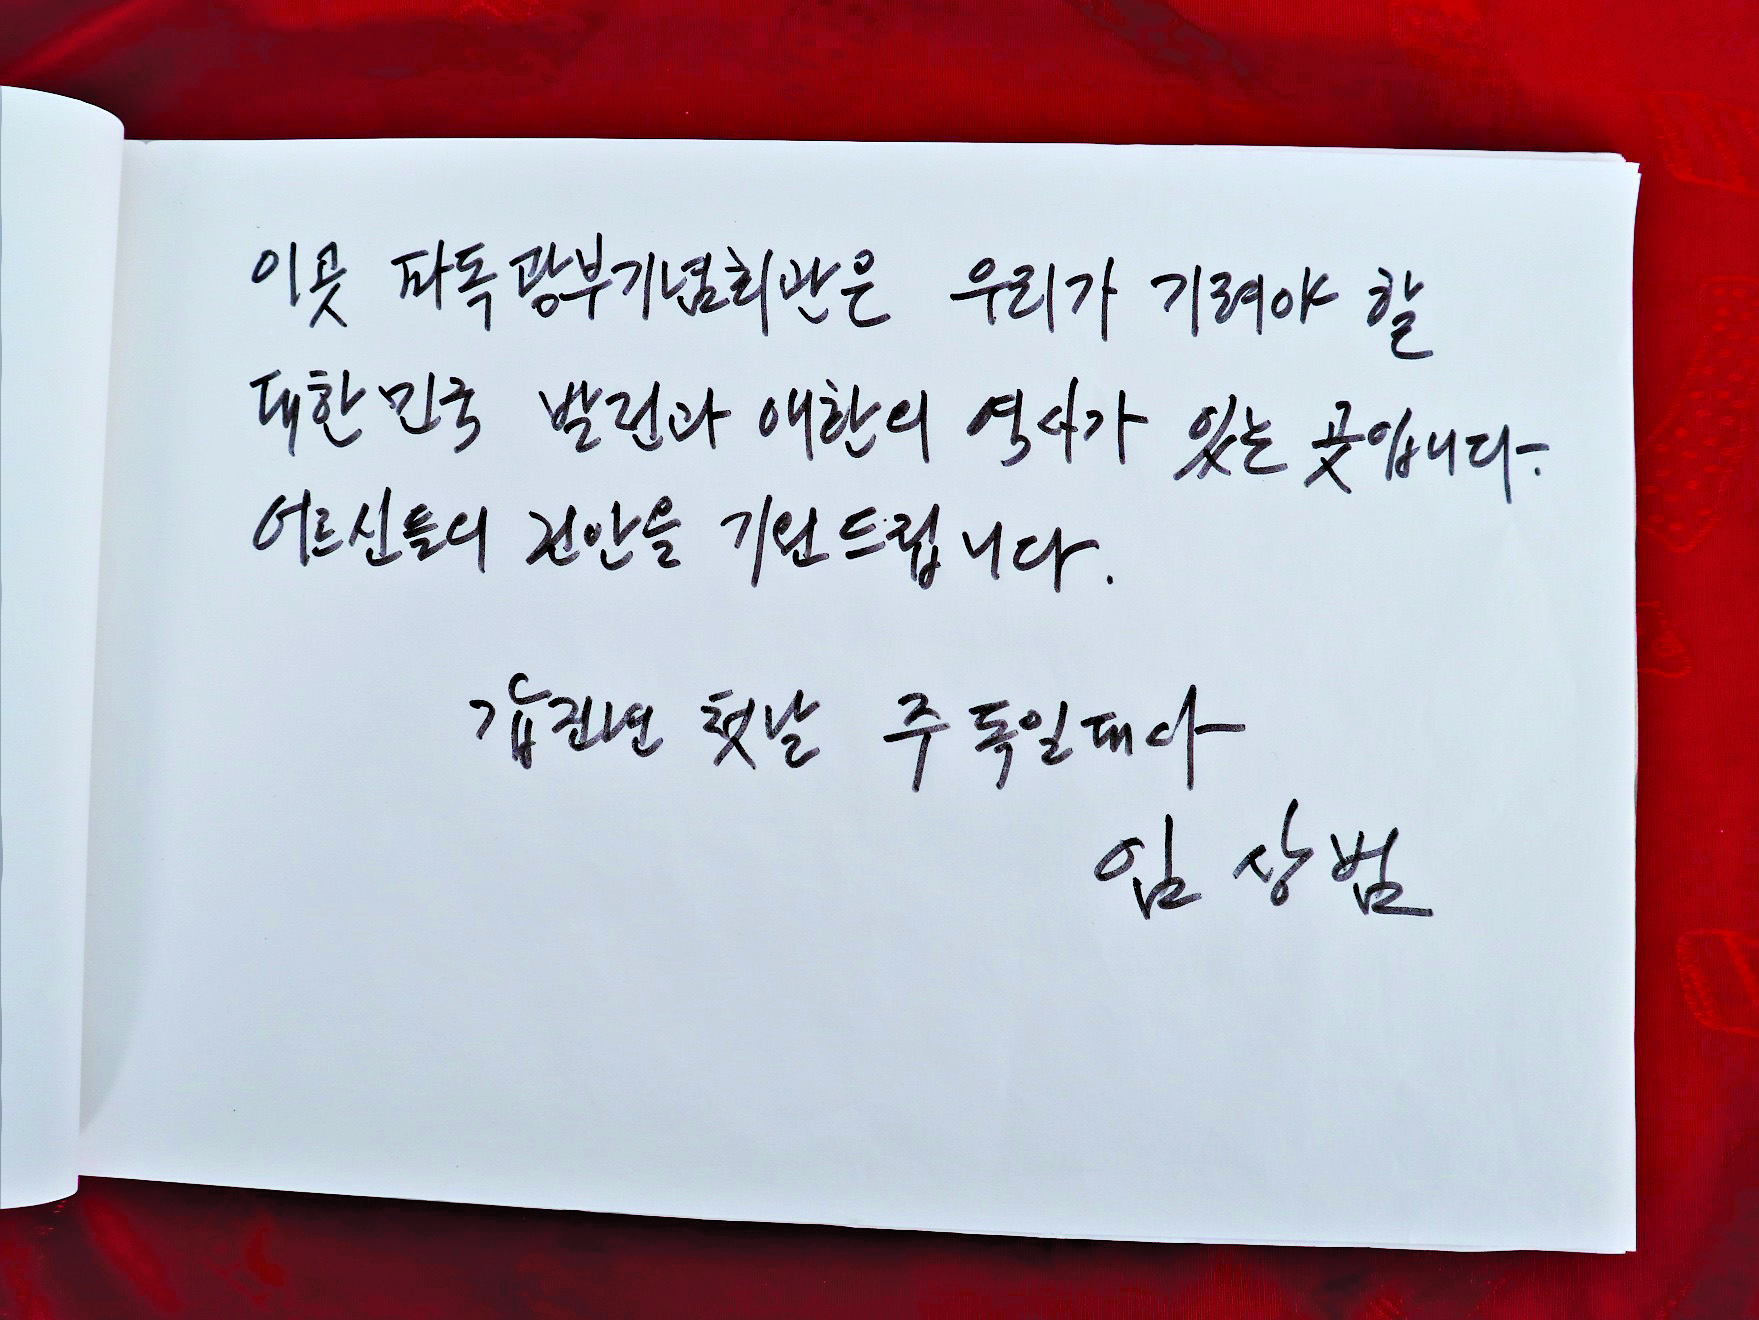 이곳 파독광부기념회관은 우리가 기려야 할
대한민국 발전과 애환의 역사가 있는 곳입니다.
어르신들의 건안을 기원드립니다.
갑진년 첫날 주독일대사
임상범